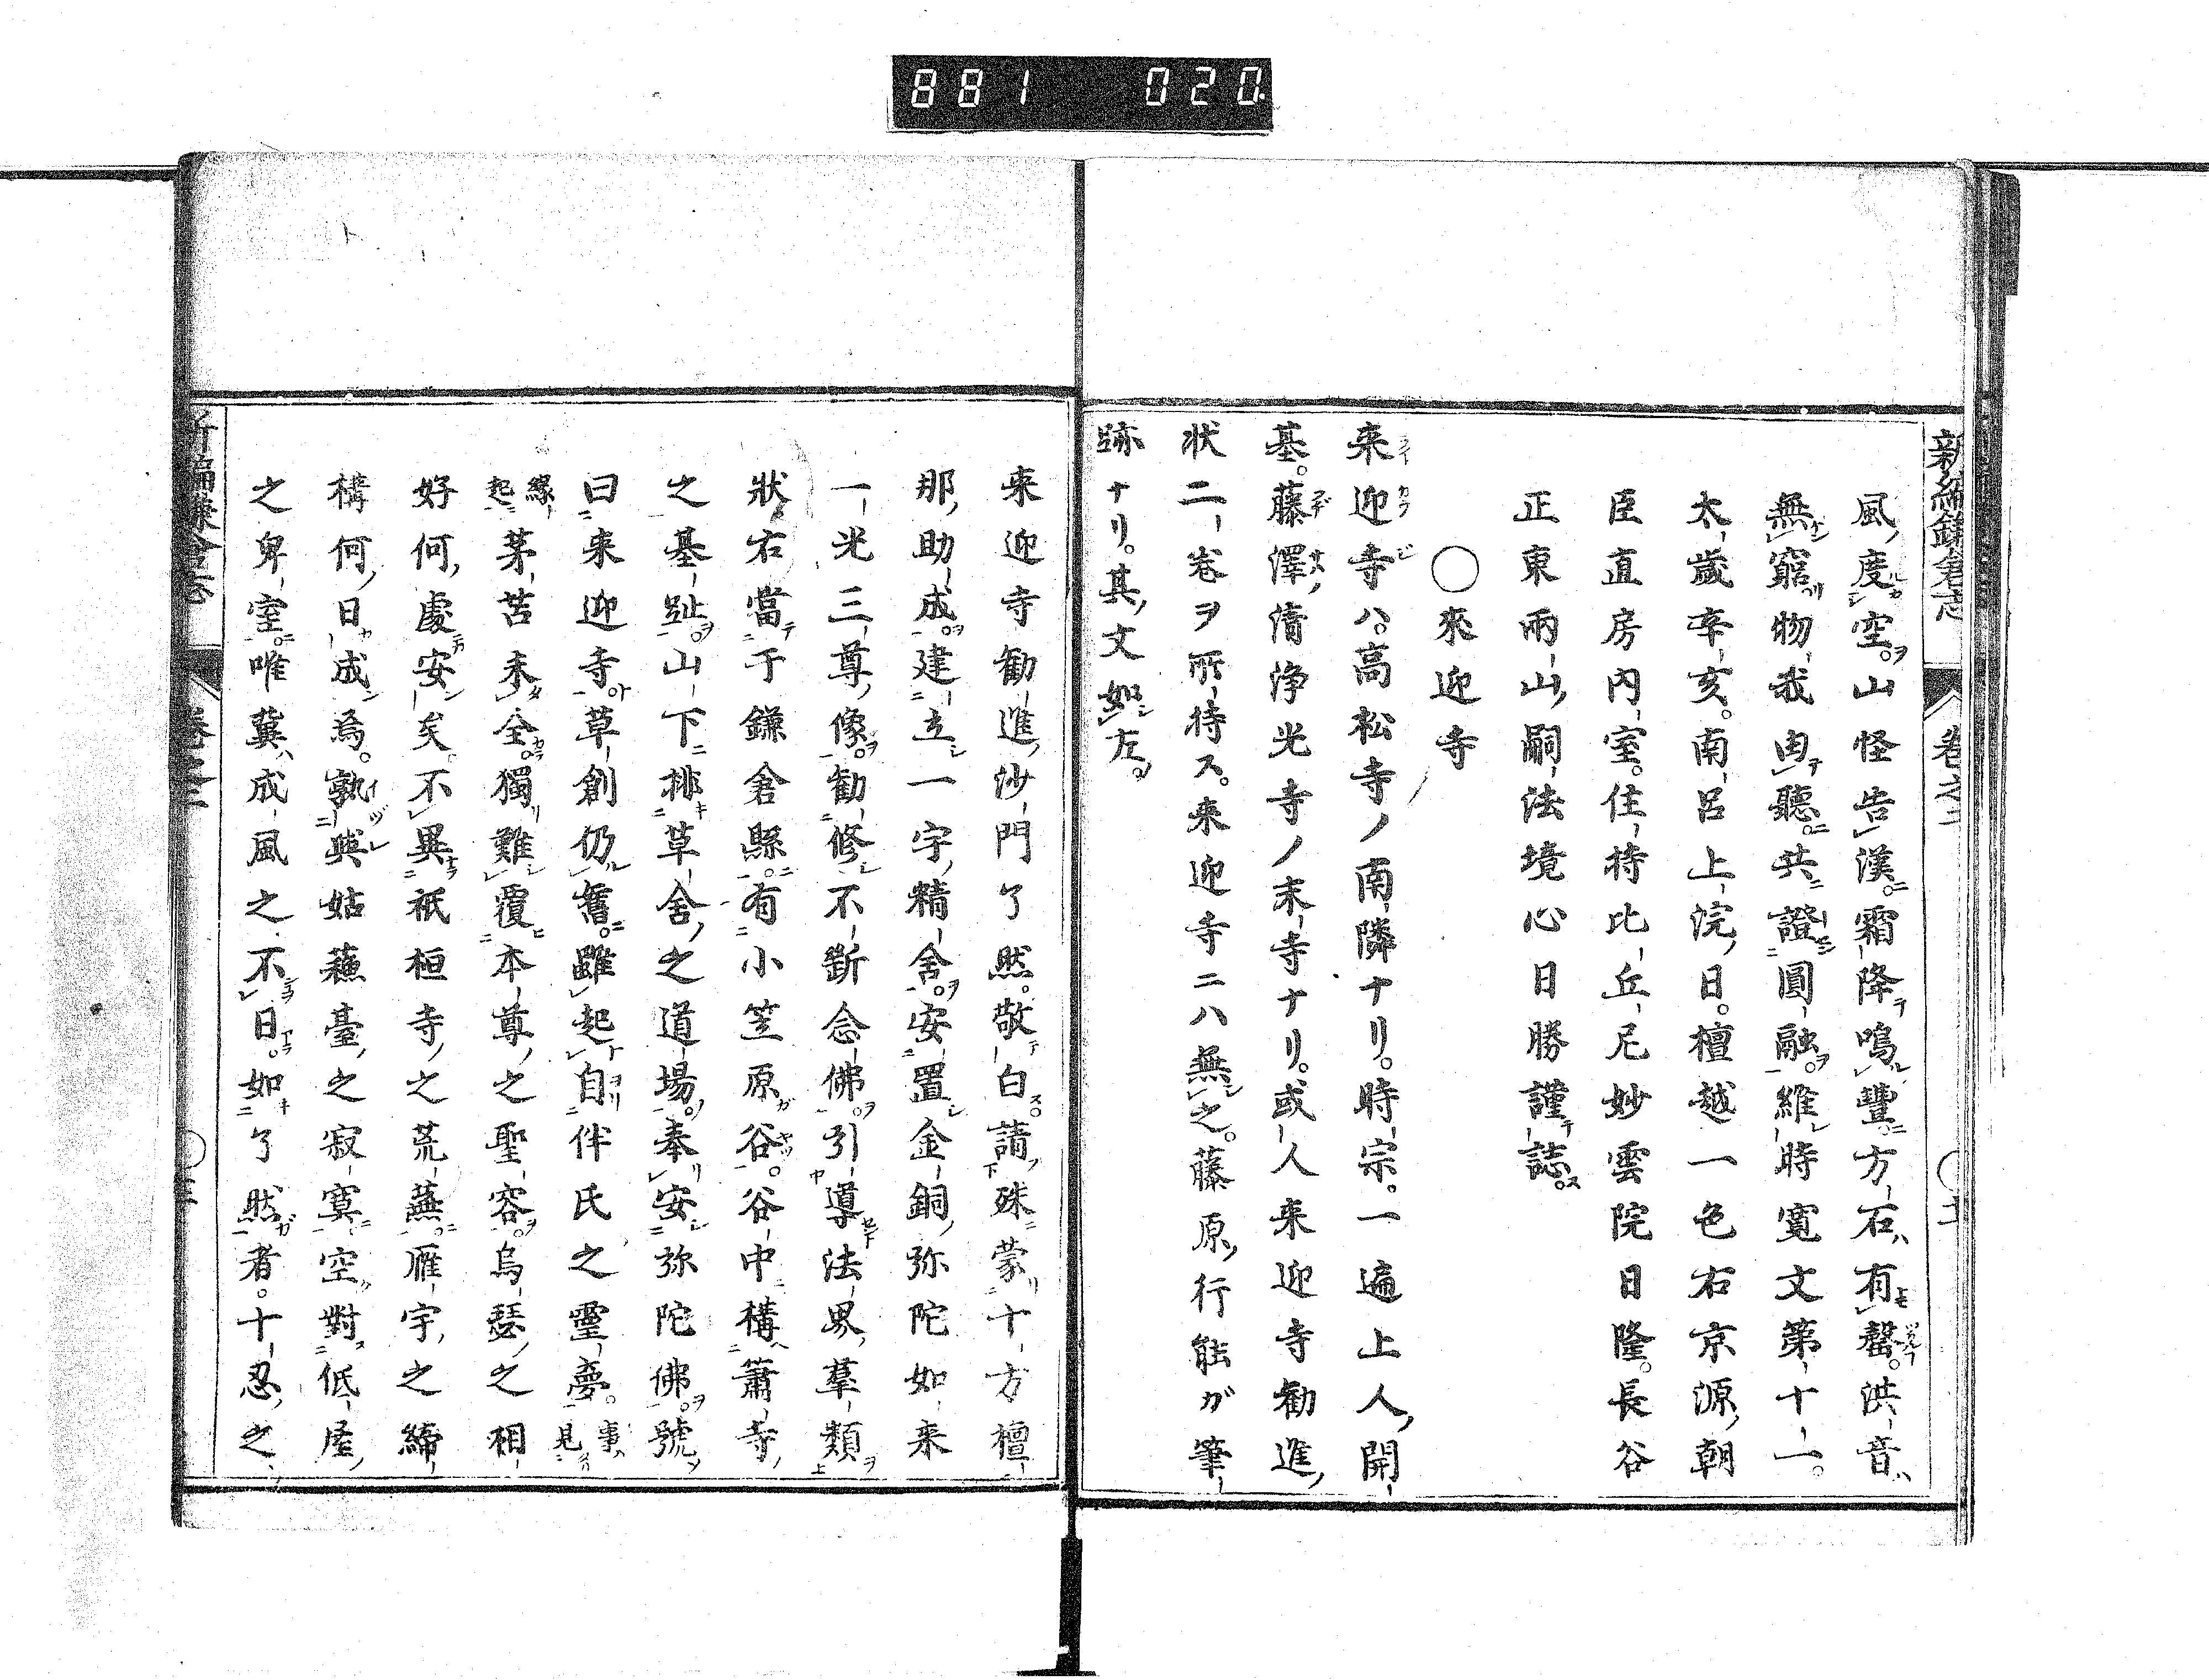 881 020
新編鎌倉志 卷之二
風度空。山怪告漢。霜降鳴豐。方石有罄。洪音
無窮。物我由聽。共證圓融。維時寬文第十一。
太歲辛亥。南呂上浣日。檀越一色右京源朝
臣直房内室。住持比丘尼妙雲院日隆。長谷
正東兩山嗣法境心日勝謹誌。
○來迎寺
来迎寺ハ。高松寺ノ南隣ナリ。時宗。一遍上人開
基。藤澤清浄光寺ノ末寺ナリ。或人来迎寺勸進
状二巻ヲ所持ス。来迎寺ニハ無之。藤原行能ガ筆
跡ナリ。其文如左。
来迎寺勸進沙門了然。敬白請殊蒙十方檀
那助成建立一宇精舍。安置金銅弥陀如来
一光三尊像。勸修不斷念佛。引導法界羣類
狀右當于鎌倉縣。有小笠原谷。谷中構簫寺
之基趾。山下排草舍之道場。奉安弥陀佛。號
曰来迎寺。草創仍舊。雖起自伴氏之靈夢。事見
緣起茅苫未全。獨難覆本尊之聖容。烏瑟之相
好何處安矣。不異祇桓寺之荒蕪。雁宇之締
構何日成焉。孰與姑蘓臺之寂寞。空對低屋
之卑室。唯冀成風之不日。如了然者。十忍之
新編鎌倉志 卷之二